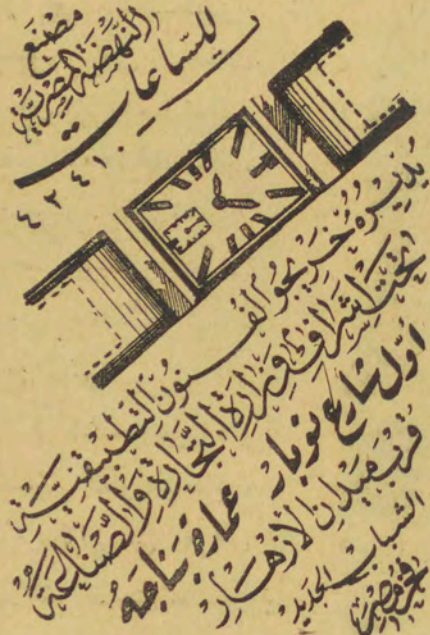 مصنع
النهضة المصرية
للساعات
٤٢٤١٠
يديره خريجو الفنون التطبيقية
تحت إشراف وزارة التجارة والصناعة
أول شارع نوبار عمارة ناجه
قرب ميدان الأزهار
الشباب الجديد
فخر مصر